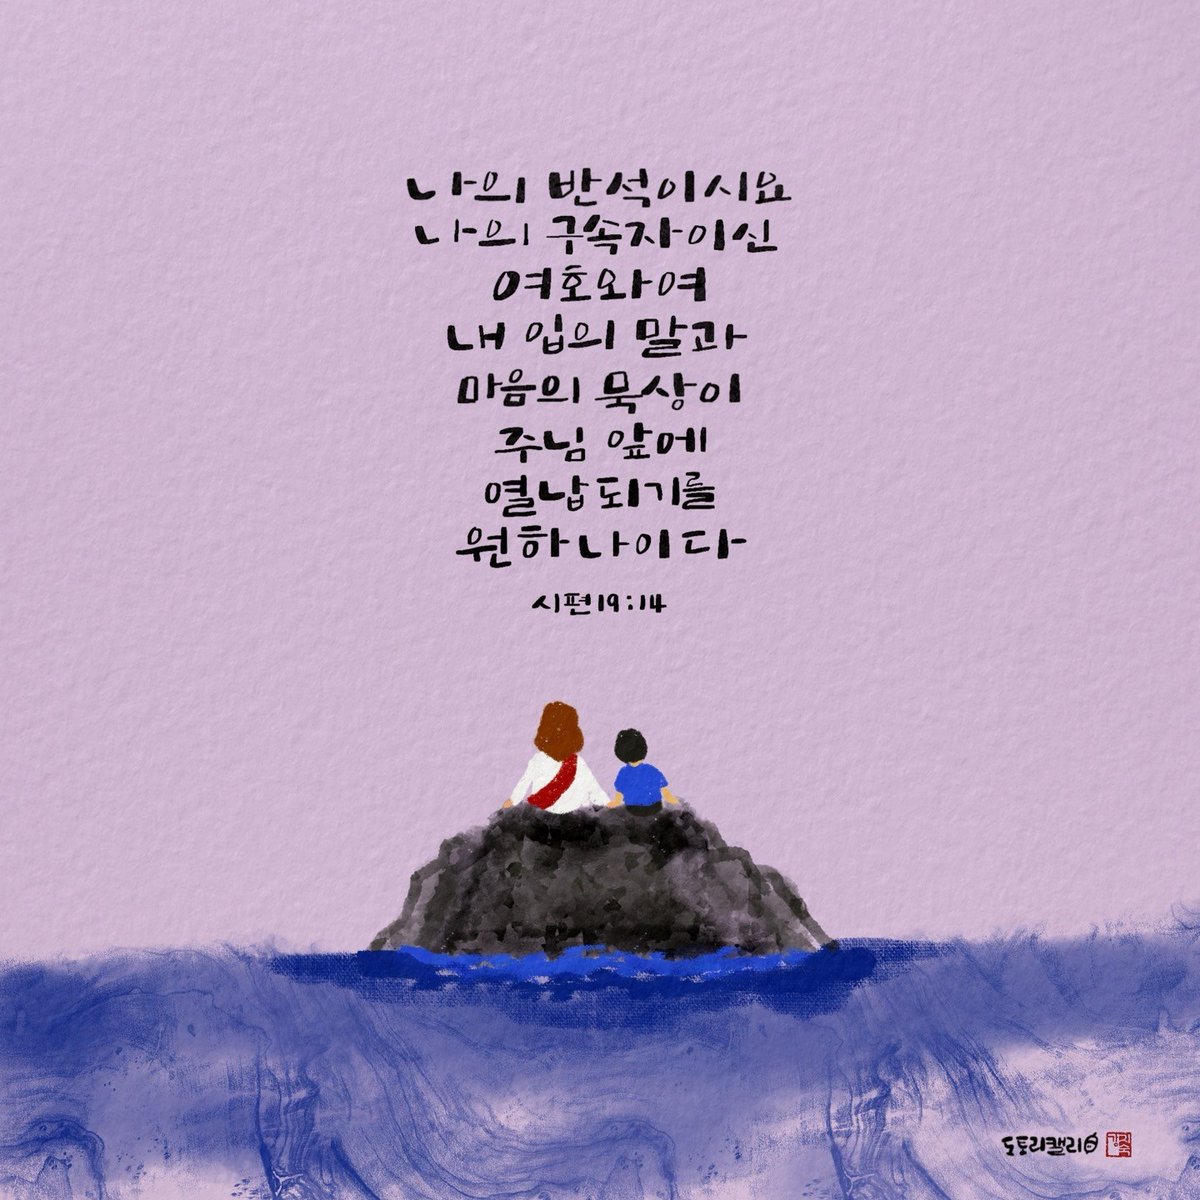 나의 반석이시요
나의 구속자이신
여호와여
내 입의 말과
마음의 묵상이
주님 앞에
열납되기를
원하나이다
시편 19:14
도토리캘리